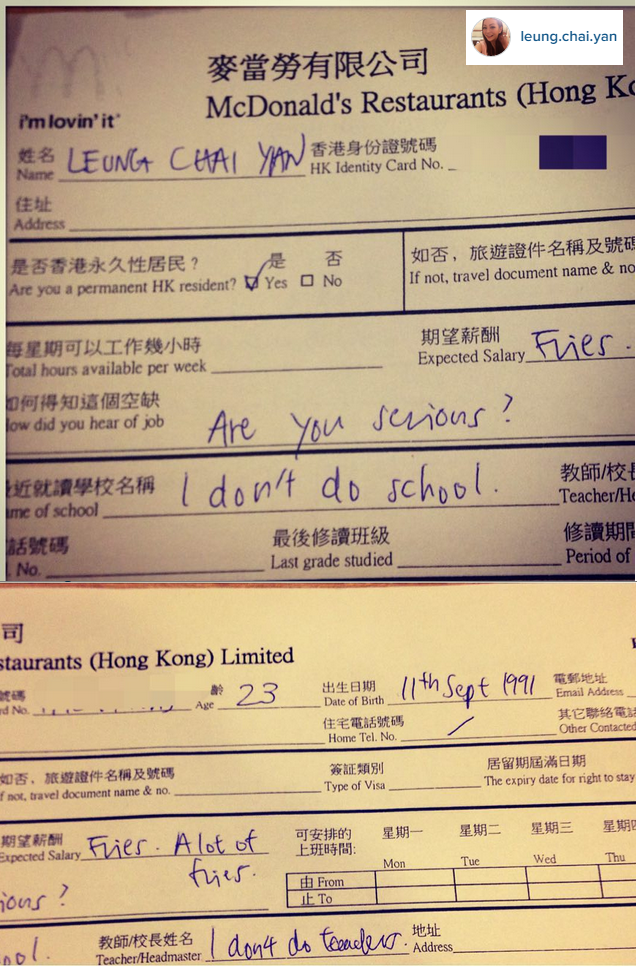 leung.chai.yan
麥當勞有限公司
McDonald's Restaurants (Hong
i'm lovin' it
姓名 LEUNG CHAI YAN 香港身份證號碼
Name HK Identity Card No.
住址
Address
是否香港永久性居民？ 是 否 如否，旅遊證件名稱及號碼
Are you a permanent HK resident? Yes No If not, travel document name & no
每星期可以工作幾小時 期望薪酬
Total hours available per week Expected Salary Fries.
如何得知這個空缺
How did you hear of job Are you serious?
近就讀學校名稱 I don't do school. 教師/校長
name of school Teacher/He
話號碼 最後修讀班級 修讀期間
No. Last grade studied Period of
司
staurants (Hong Kong) Limited
號碼 齡 23 出生日期 11th Sept 1991 電郵地址
rd No. Age Date of Birth Email Address
住宅電話號碼 其它聯絡電話
Home Tel. No. Other Contacted
如否，旅遊證件名稱及號碼 簽証類別 居留期屆滿日期
f not, travel document name & no. Type of Visa The expiry date for right to stay
期望薪酬 可安排的 星期一 星期二 星期三 星期四
Expected Salary Fries. A lot of 上班時間: Mon Tue Wed Thu
fries. 由 From
ious? 止 To
ool. 教師/校長姓名 I don't do teachers. 地址
Teacher/Headmaster Address